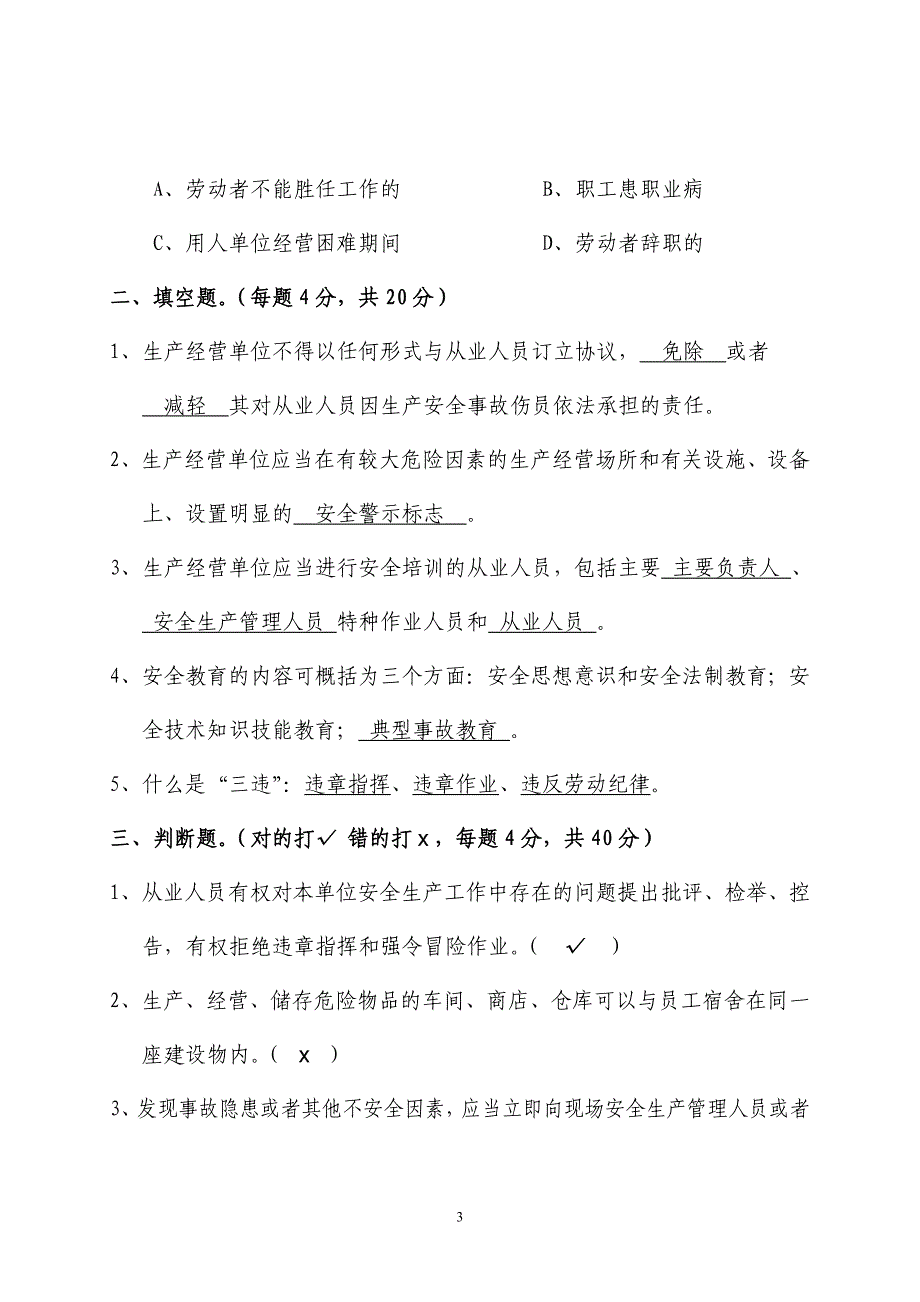 A、劳动者不能胜任工作的 B、职工患职业病
C、用人单位经营困难期间 D、劳动者辞职的
二、填空题。（每题4分，共20分）
1、生产经营单位不得以任何形式与从业人员订立协议， 免除 或者
减轻 其对从业人员因生产安全事故伤员依法承担的责任。
2、生产经营单位应当在有较大危险因素的生产经营场所和有关设施、设备
上、设置明显的 安全警示标志 。
3、生产经营单位应当进行安全培训的从业人员，包括主要 主要负责人 、
安全生产管理人员 特种作业人员和 从业人员 。
4、安全教育的内容可概括为三个方面：安全思想意识和安全法制教育；安
全技术知识技能教育； 典型事故教育 。
5、什么是“三违”：违章指挥、违章作业、违反劳动纪律。
三、判断题。（对的打√ 错的打x，每题4分，共40分）
1、从业人员有权对本单位安全生产工作中存在的问题提出批评、检举、控
告，有权拒绝违章指挥和强令冒险作业。（ √ ）
2、生产、经营、储存危险物品的车间、商店、仓库可以与员工宿舍在同一
座建设物内。（ x ）
3、发现事故隐患或者其他不安全因素，应当立即向现场安全生产管理人员或者
3